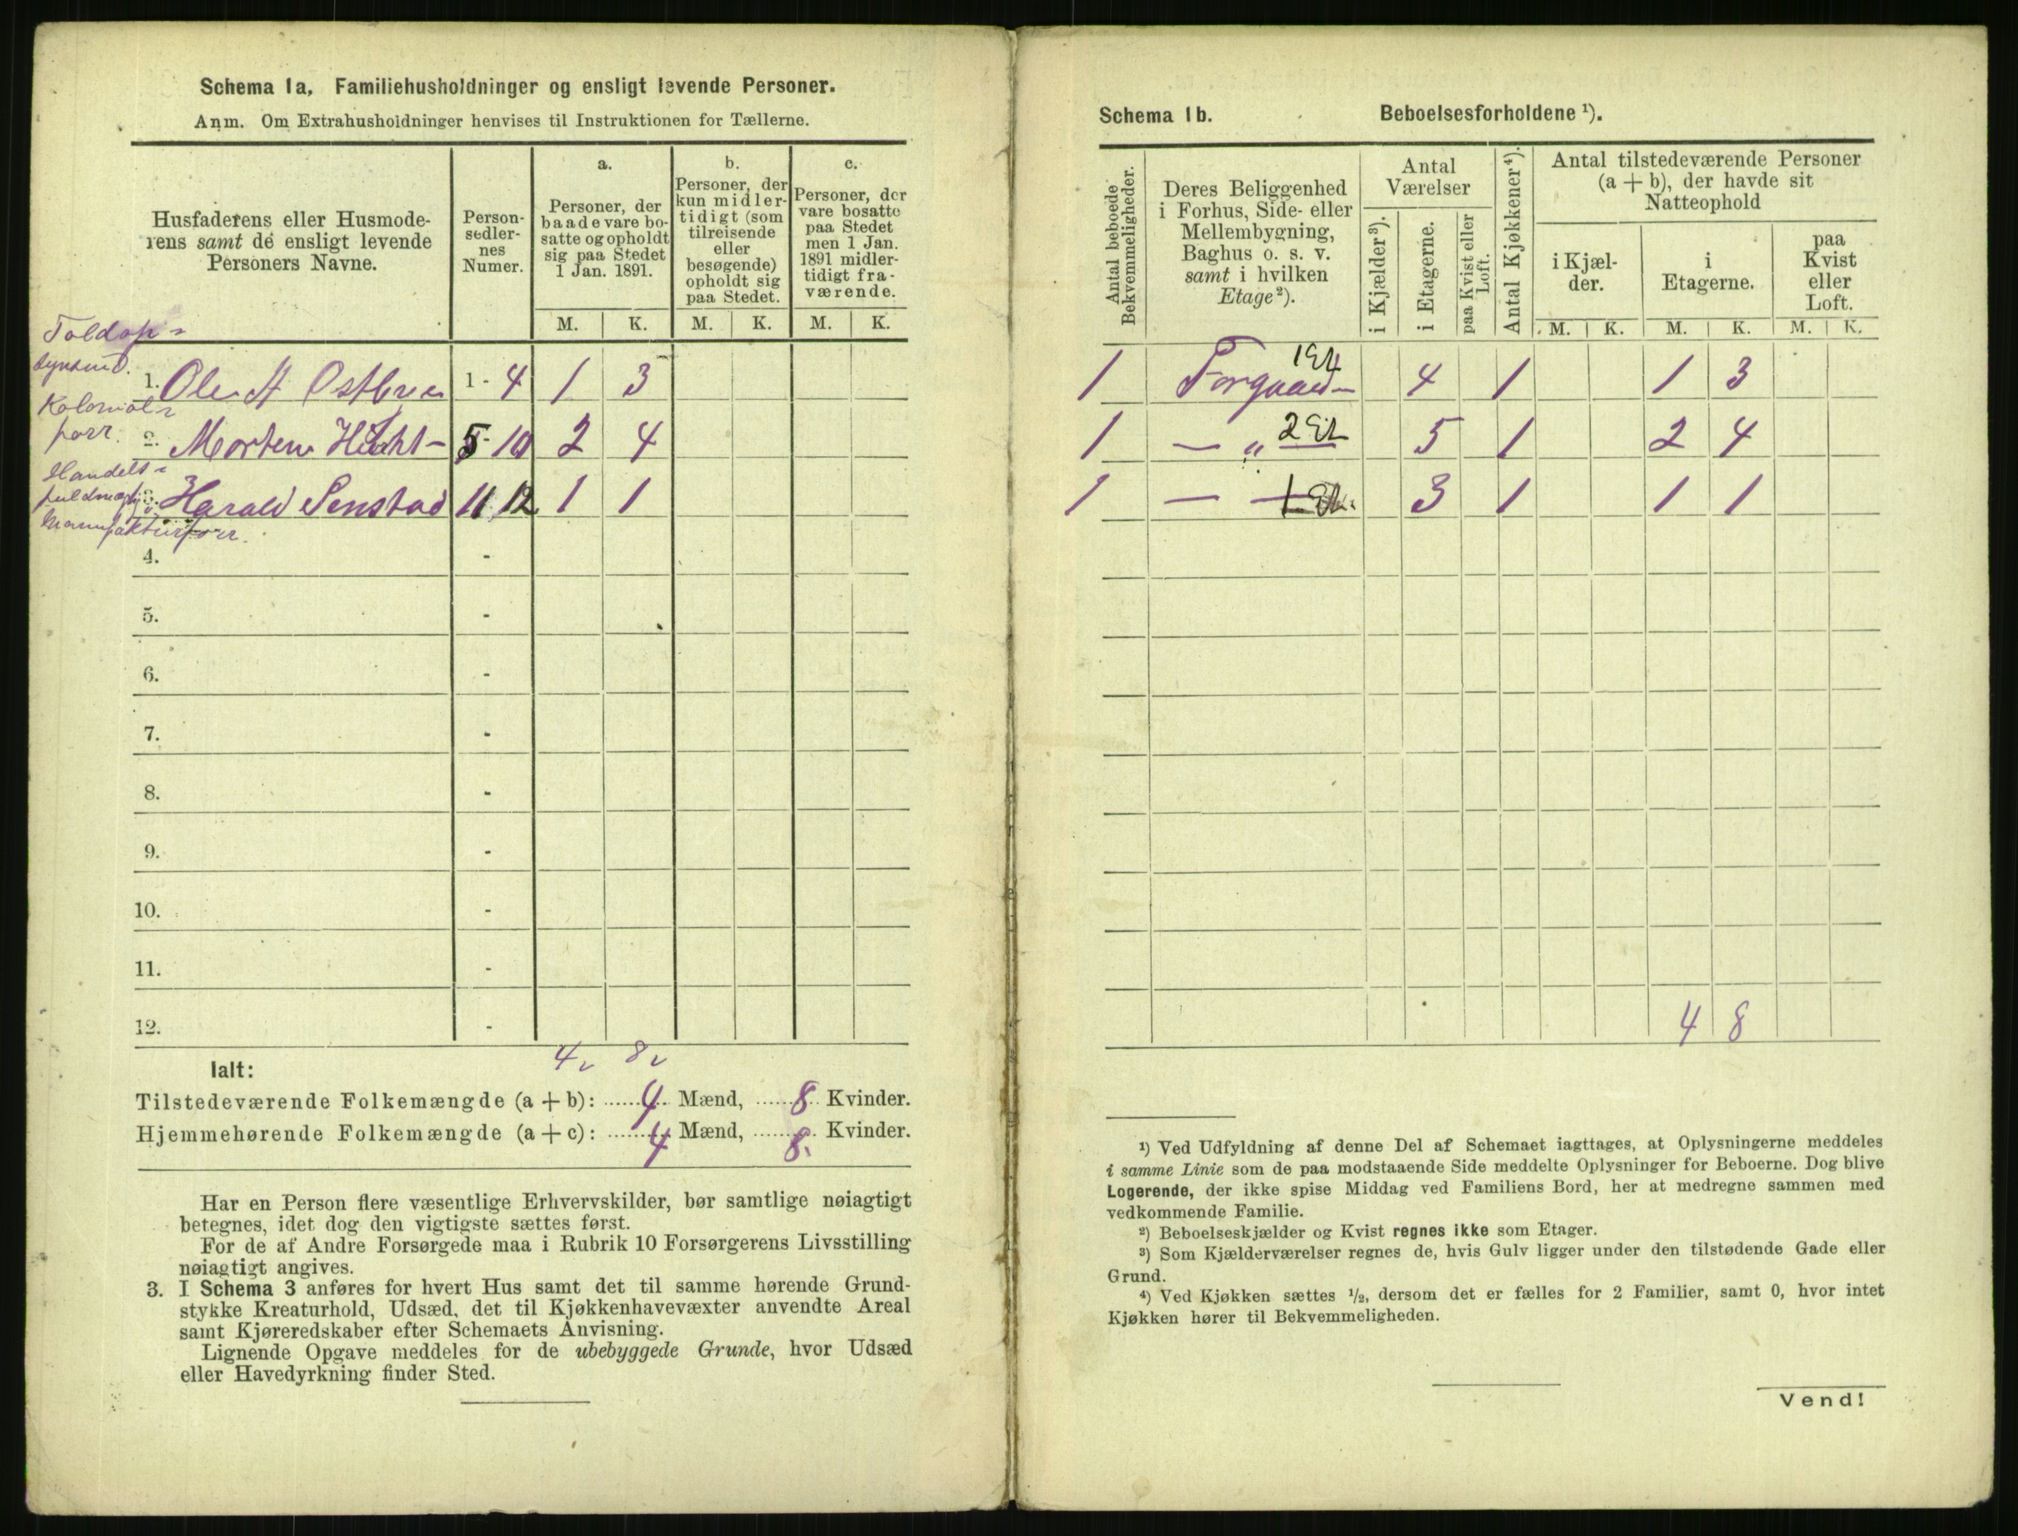 Schema 1a. Familiehusholdninger og ensligt levende Personer.
Anm. Om Extrahusholdninger henvises til Instruktionen for Tællerne.
Husfaderens eller Husmode-
rens samt de ensligt levende
Personers Navne.
Person-
sedler-
nes
Numer.
a.
Personer, der
baade vare bo-
satte og opholdt
sig paa Stedet
1 Jan. 1891.
b.
Personer, der
kun midler-
tidigt (som
tilreisende
eller
besøgende)
opholdt sig
paa Stedet.
c.
Personer, der
vare bosatte
paa Stedet
men 1 Jan.
1891 midler-
tidigt fra-
værende.
M. K. M. K. M. K.
Toldop-
synsmd.
1. Ole A Ostbye 1 - 4 1 3
Kolonial-
forr.
2. Morten Hecht 5 - 10 2 4
Handels-
fuldmægtig
3. Harald Senstad 11 12 1 1
Manufakturforr.
4. -
5. -
6. -
7. -
8. -
9. -
10. -
11. -
12. -
4 8
Ialt:
Tilstedeværende Folkemængde (a + b): 4 Mænd, 8 Kvinder.
Hjemmehørende Folkemængde (a + c): 4 Mænd, 8. Kvinder.
Har en Person flere væsentlige Erhvervskilder, bør samtlige nøiagtigt
betegnes, idet dog den vigtigste sættes først.
For de af Andre Forsørgede maa i Rubrik 10 Forsørgerens Livsstilling
nøiagtigt angives.
3. I Schema 3 anføres for hvert Hus samt det til samme hørende Grund-
stykke Kreaturhold, Udsæd, det til Kjøkkenhavevæxter anvendte Areal
samt Kjøreredskaber efter Schemaets Anvisning.
Lignende Opgave meddeles for de ubebyggede Grunde, hvor Udsæd
eller Havedyrkning finder Sted.
Schema 1b. Beboelsesforholdene ¹).
Antal beboede
Bekvemmeligheder.
Deres Beliggenhed
i Forhus, Side- eller
Mellembygning,
Baghus o. s. v.
samt i hvilken
Etage²).
Antal
Værelser
i Kjælder³).
i Etagerne.
paa Kvist eller
Loft.
Antal Kjøkkener⁴).
Antal tilstedeværende Personer
(a + b), der havde sit
Natteophold
i Kjæl-
der.
i
Etagerne.
paa
Kvist
eller
Loft.
M. K. M. K. M. K.
1 Forgaard 1 Et 4 1 1 3
1 — „ 2 Et 5 1 2 4
1 — — 1 Et. 3 1 1 1
4 8
¹) Ved Udfyldning af denne Del af Schemaet iagttages, at Oplysningerne meddeles
i samme Linie som de paa modstaaende Side meddelte Oplysninger for Beboerne. Dog blive
Logerende, der ikke spise Middag ved Familiens Bord, her at medregne sammen med
vedkommende Familie.
²) Beboelseskjælder og Kvist regnes ikke som Etager.
³) Som Kjælderværelser regnes de, hvis Gulv ligger under den tilstødende Gade eller
Grund.
⁴) Ved Kjøkken sættes ½, dersom det er fælles for 2 Familier, samt 0, hvor intet
Kjøkken hører til Bekvemmeligheden.
Vend!